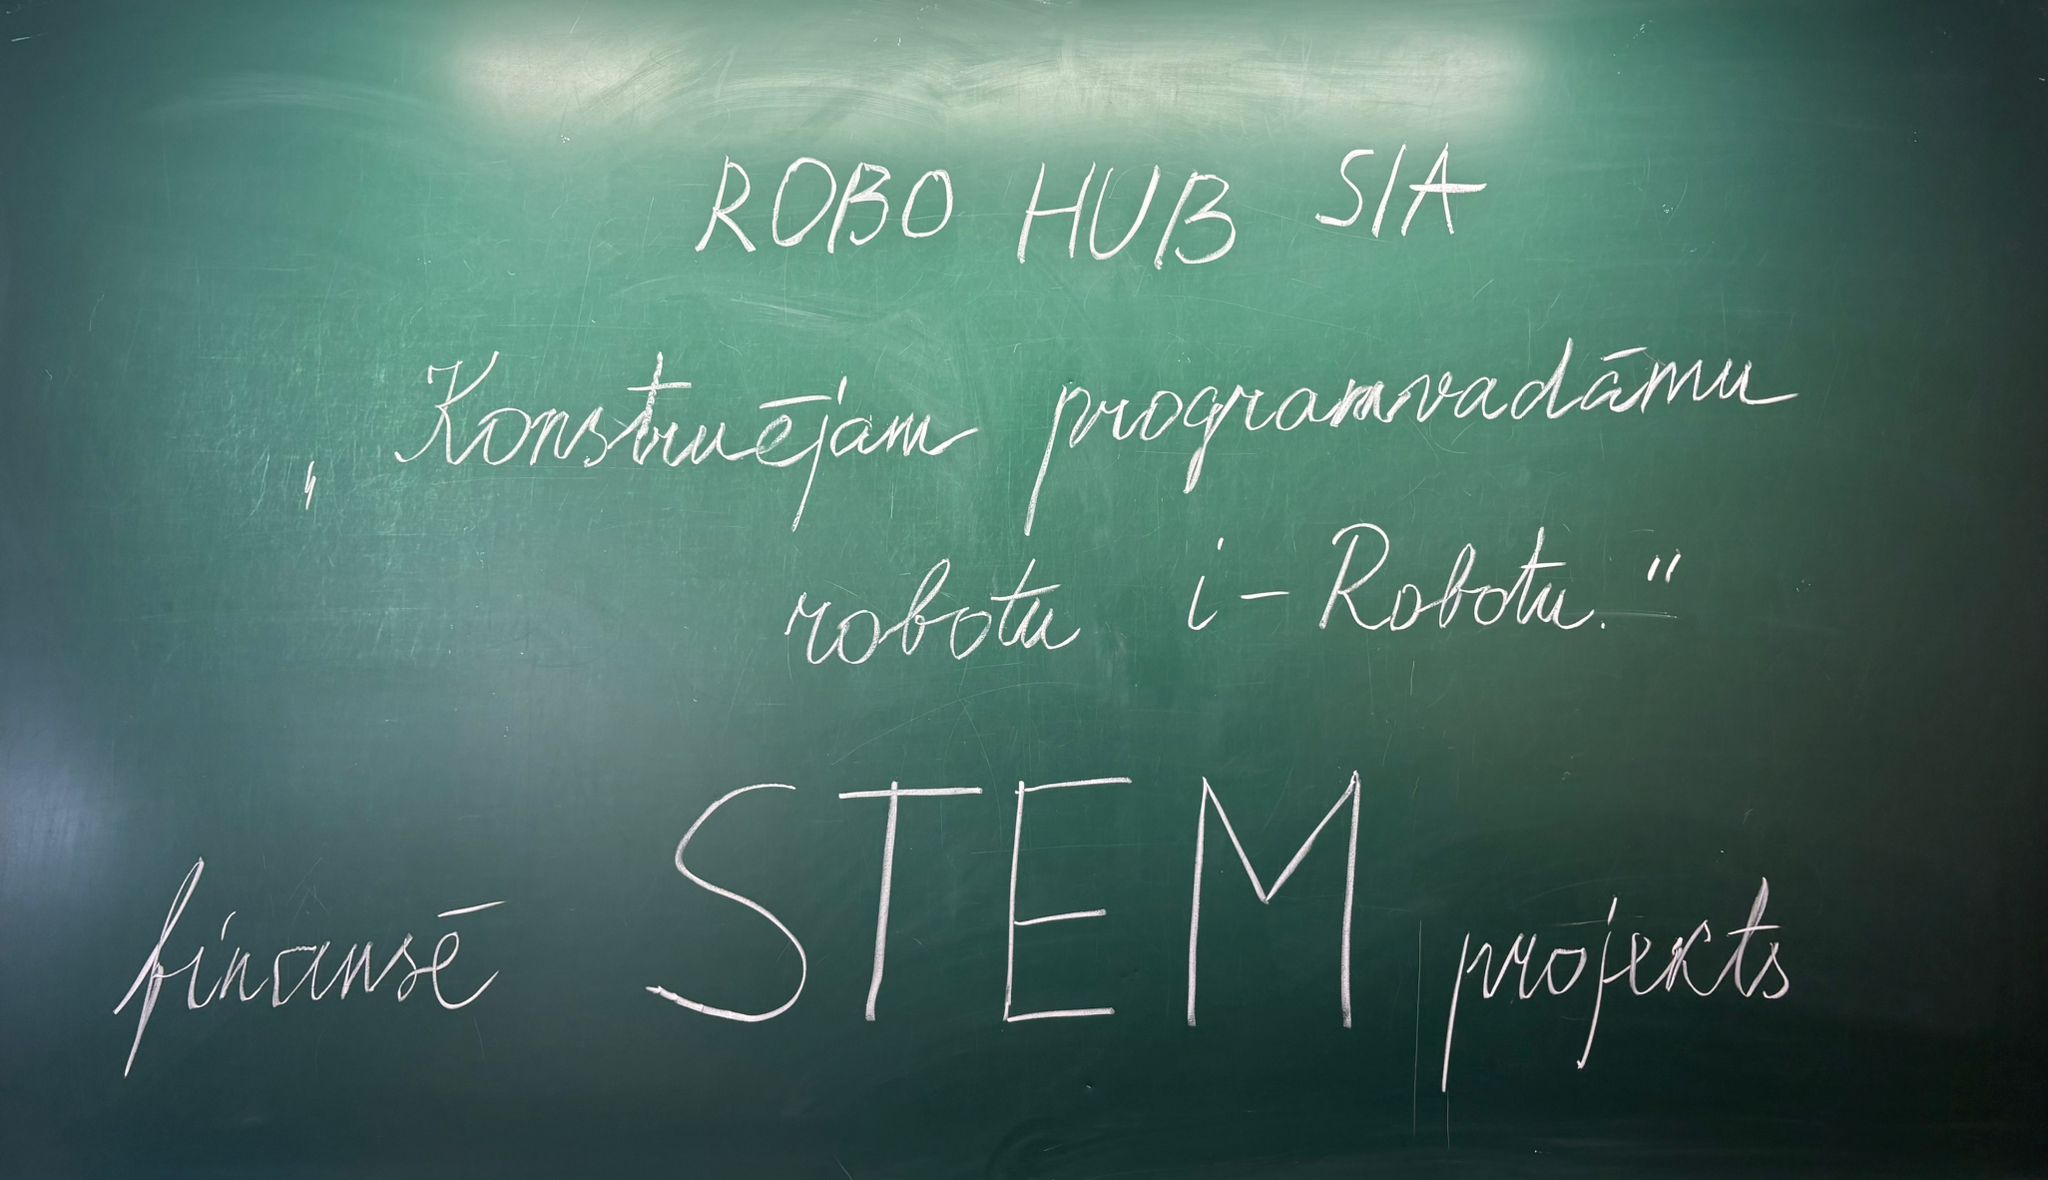 ROBO HUB SIA
„Konstruējam programvadāmu
robotu i-Robotu."
finansē STEM projekts